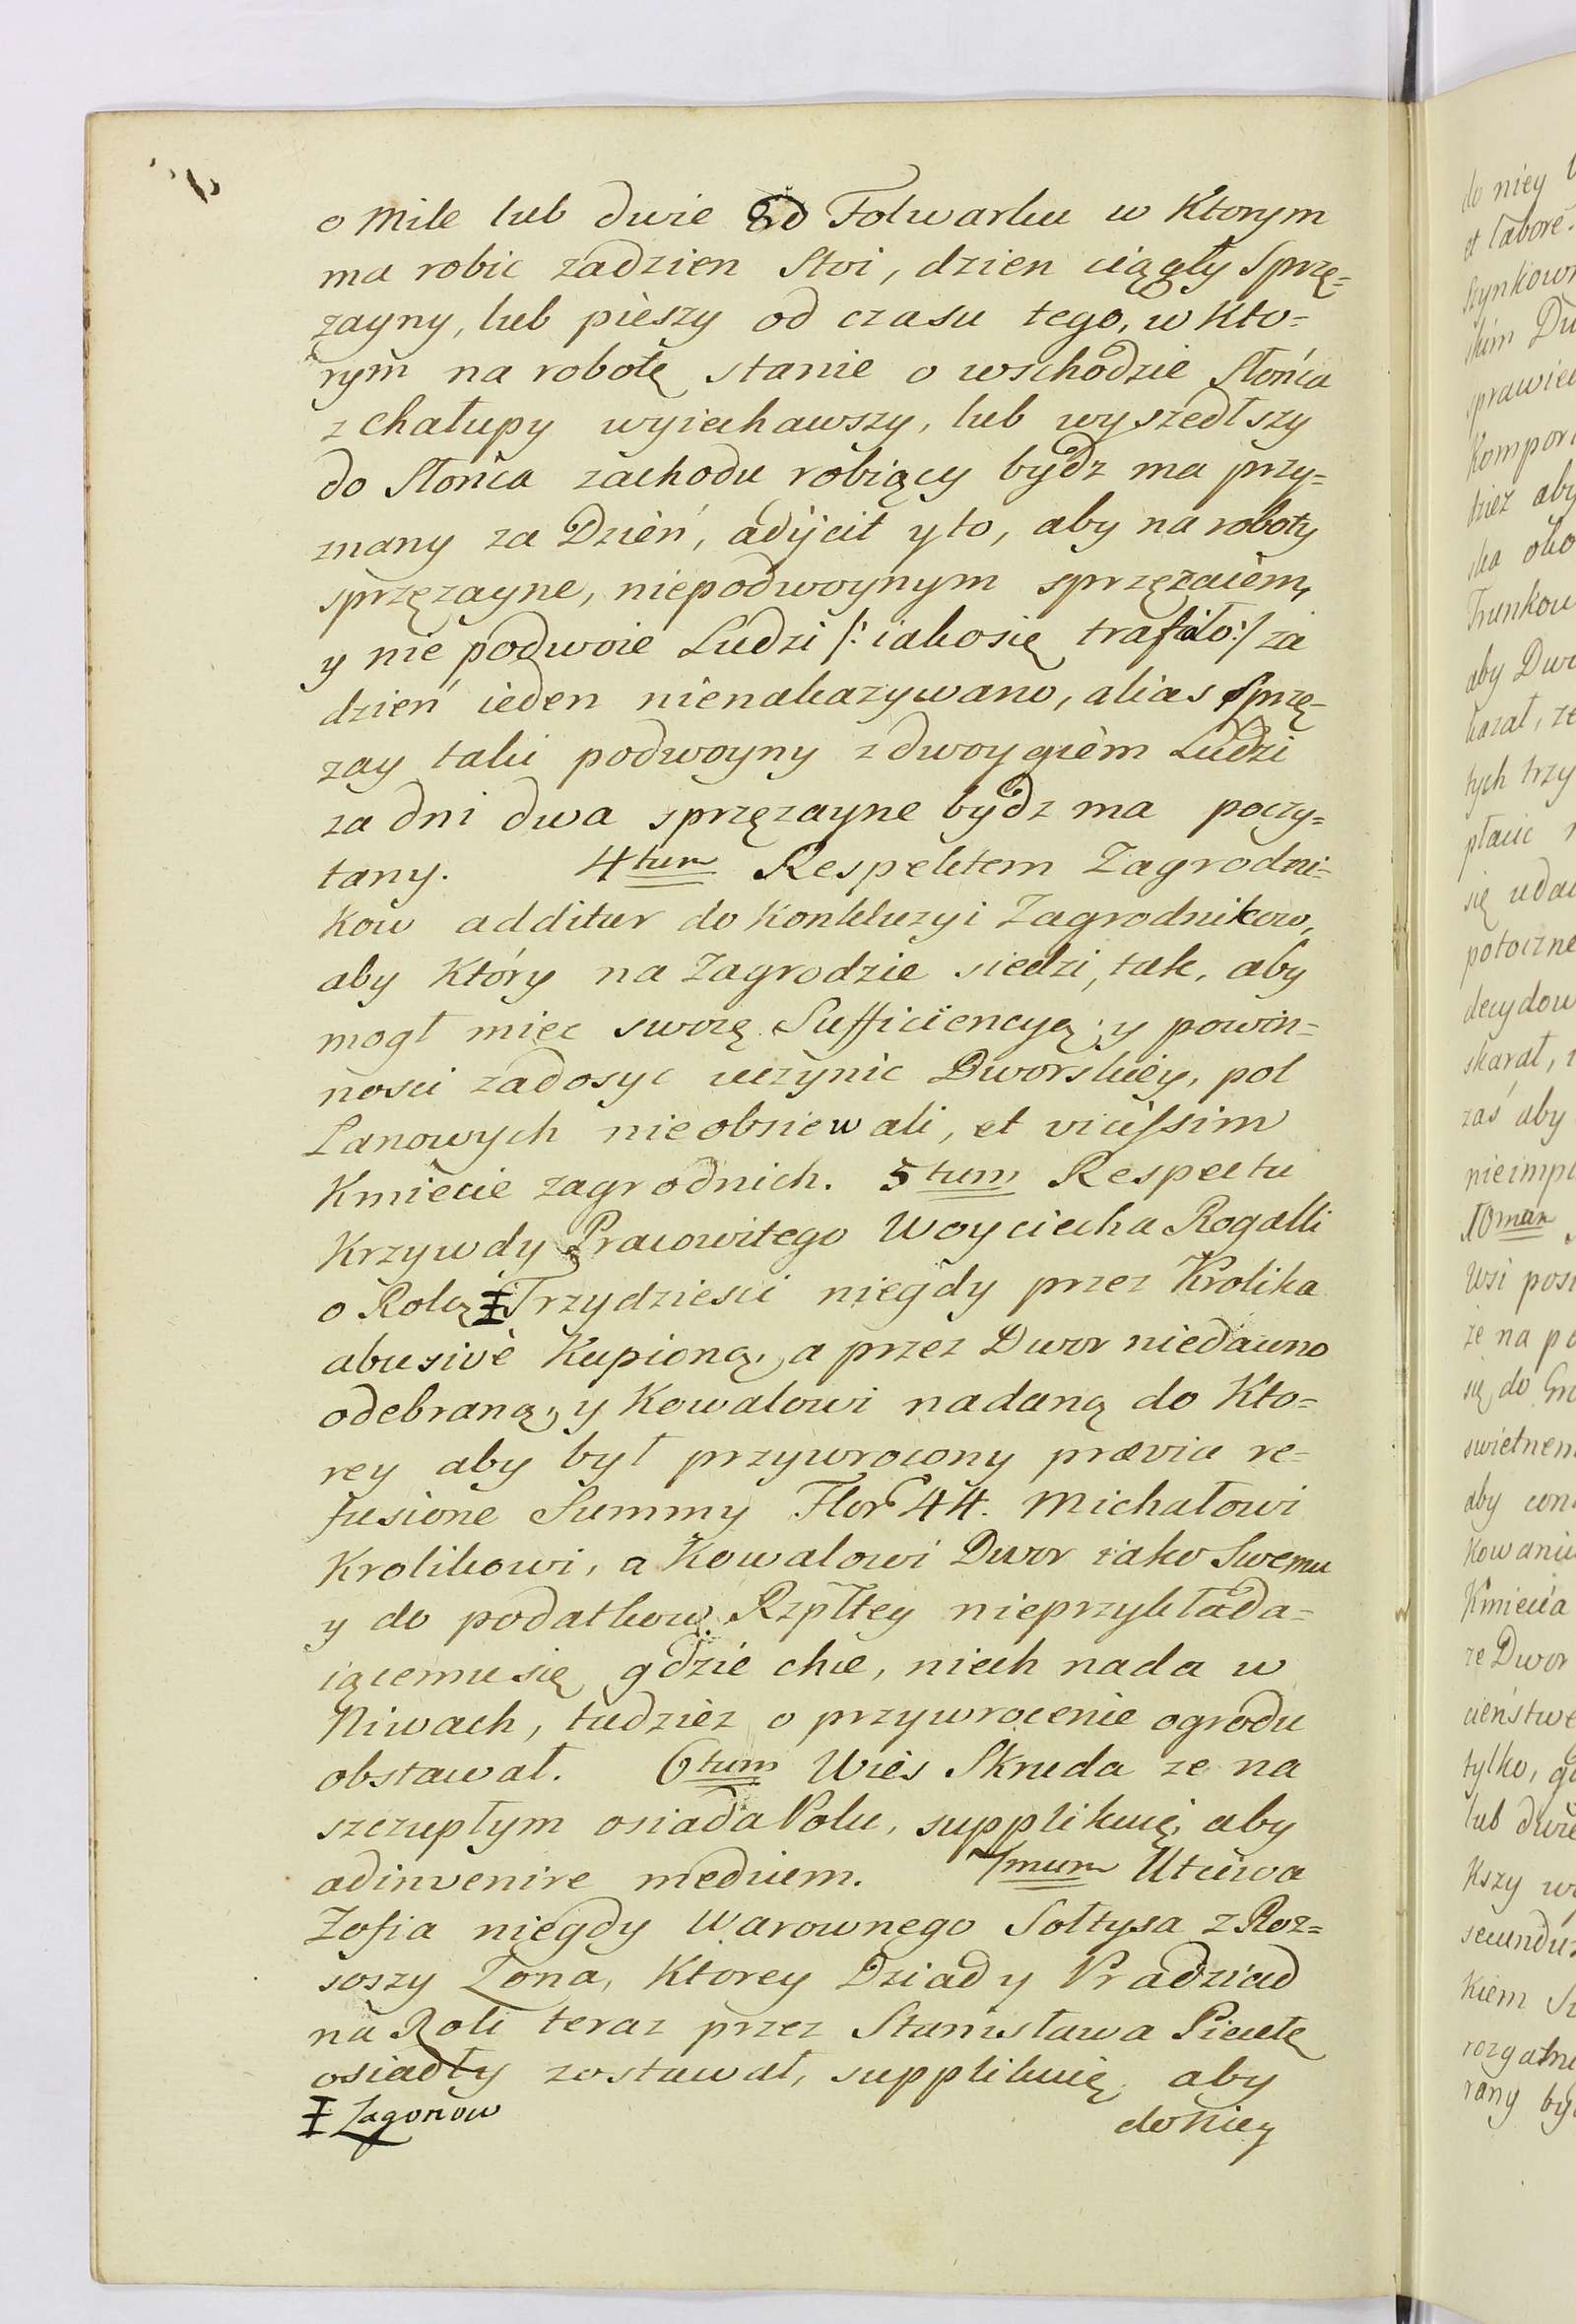 o Mile lub dwie od Folwarku w Ktorym
ma robic zadzien Stoi, dzien ciągły Sprzę=
zayny, lub pieszy od czasu tego, w Kto=
rym na robotę stanie o wschodzie Słońca
z Chałupy wyiechawszy, lub wyszedłszy
do Słońca zachodu robiący bydz ma przy=
znany za Dzień, adijcit y to, aby na roboty
sprzęzayne, niepodwoynym sprzęzaiem,
y nie podwoie Ludzi /: iakosię trafiało :/ za
dzień ieden nienakazywano, alias Sprzę=
zay taki podwoyny z dwoygiem Ludzi
za dni dwa sprzęzayne bydz ma poczy=
tany. 4tum Respektem Zagrodni=
kow additur do Konkluzyi Zagrodnikow,
aby Który na Zagrodzie siedzi, tak, aby
mogł miec swoię Sufficiencyą, y powin=
nosci zadosyc uczynic Dworskiey, pol
Lanowych nieobsiewali, et vicissim
Kmiecie zagrodnich. 5tum Respectu
Krzywdy Pracowitego Woyciecha Rogalli
o Rolą ‡ Trzydziesci niegdy przez Krolika
abusivè Kupioną, a przez Dwor niedawno
odebraną, y Kowalowi nadaną do Kto=
rey aby był przywrocony prævia re=
fusione Summy Flor 44. Michałowi
Krolikowi, a Kowalowi Dwor iako Swemu
y do podatkow Rzpltey nieprzykłada=
iącemusię gdzie chce, niech nada w
Niwach, tudziez o przywrocenie ogrodu
obstawał. 6tum Wies Skruda ze na
szczupłym osiada Polu, supplikuię, aby
adinvenire medium. 7mum Utciwa
Zofia niegdy Warownego Sołtysa z Roz=
soszy Zona, Ktorey Dziad y Pradziad
na Roli teraz przez Stanisława Piec
osiadły zostawał, supplikuię, aby
‡ Zagonow
do niey